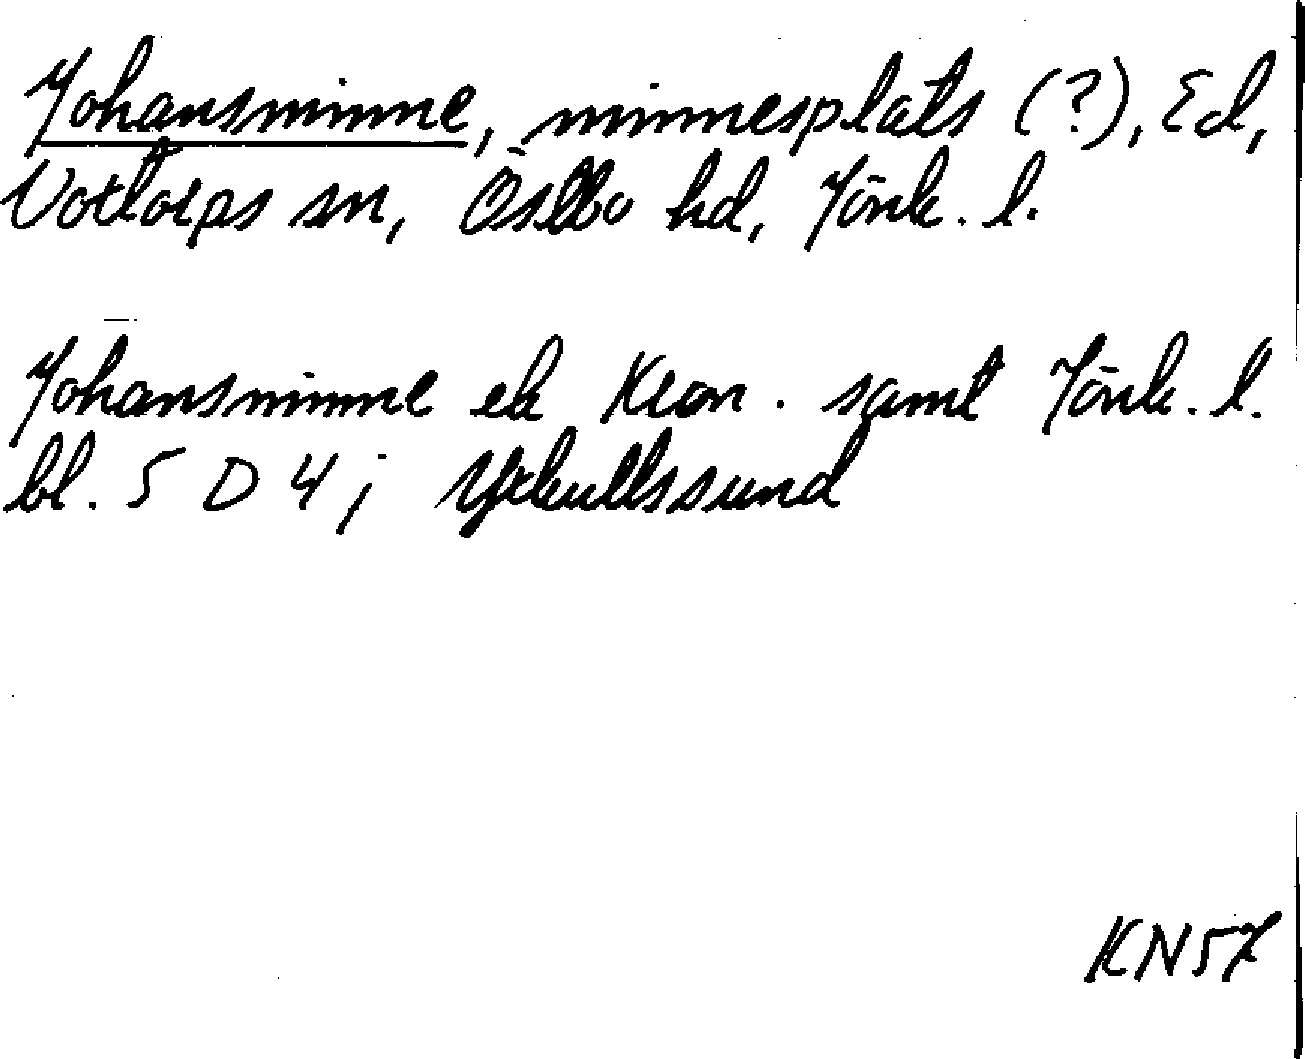 Johansminne, minnesplats (?), Ed,
Voxtorps sn, Östbo hd, Jönk. l.
Johansminne ek Kron. samt Jönk. l.
bl. 5 D 4; Yxkullssund
KN57